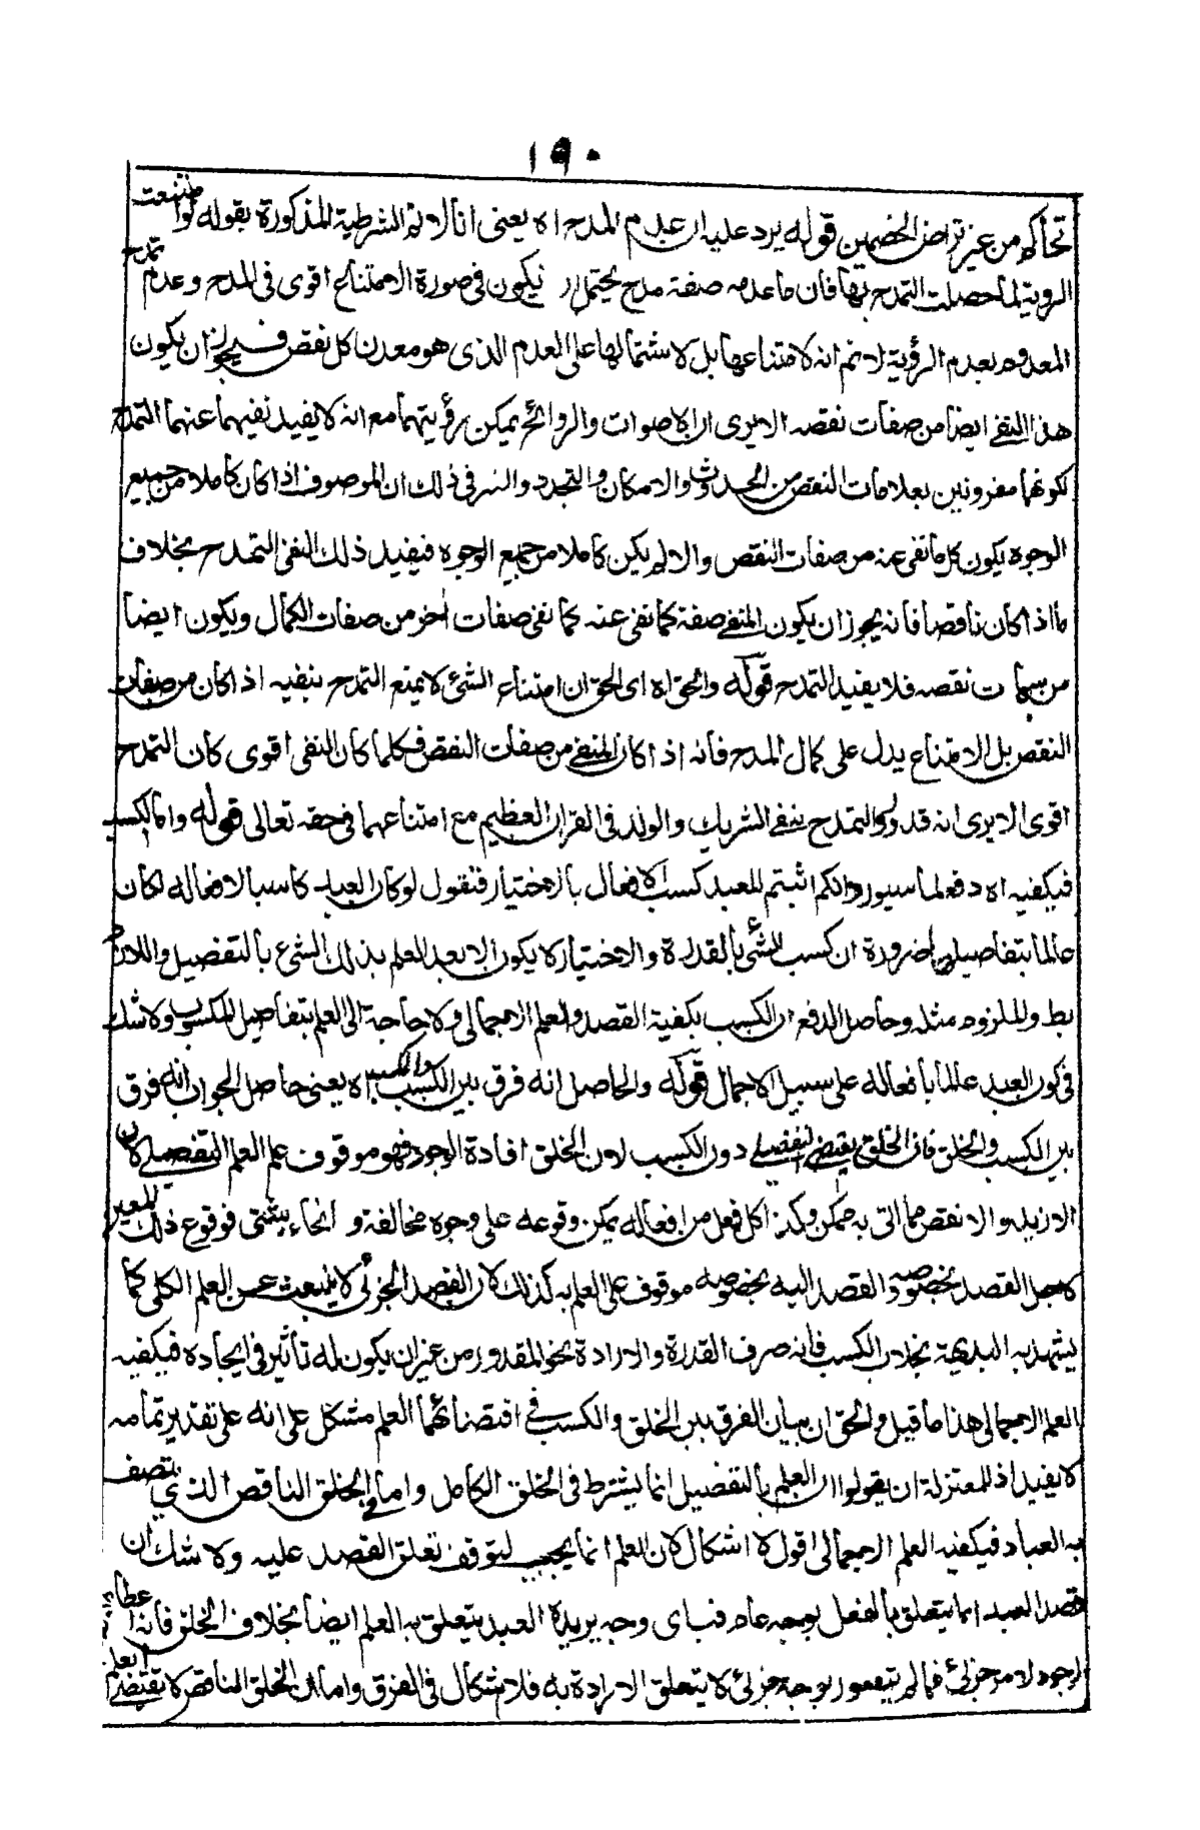 ١٩٠
تحاكم من غير تراض الخصمين قوله يرد عليه ان عدم المدح اه يعنى انا لا نم الشرطية المذكورة بقوله لو امتنعت
الروية لما حصلت التمدح بها فان ما عدمه صفة مدح يحتمل ان يكون فى صورة الامتناع اقوى فى المدح وعدم تمدح
المعدوم بعدم الرؤية لا نم انه لامتناعها بل لاشتمالها على العدم الذى هو معدن كل نقص فيجوز ان يكون
هذا النفى ايضا من صفات نقصه الا يرى ان الاصوات والروائح يمكن رؤيتهما مع انه لا يفيد نفيهما عنهما التمدح
لكونهما مقرونين بعلامات النقص من الحدوث والامكان والتجدد والسر فى ذلك ان الموصوف اذا كان كاملا من جميع
الوجوه يكون كل ما نفى عنه من صفات النقص والا لم يكن كاملا من جميع الوجوه فيفيد ذلك النفى التمدح بخلاف
ما اذا كان ناقصا فانه يجوز ان يكون المنفى صفة كما نفى عنه كما نفى صفات اخر من صفات الكمال ويكون ايضا
من سمات نقصه فلا يفيد التمدح قوله والحق اه اى الحق ان امتناع الشئ لا يمنع التمدح بنفيه اذا كان من صفات
النقص بل الامتناع يدل على كمال المدح فانه اذا كان المنفى من صفات النقص فكلما كان النفى اقوى كان التمدح
اقوى الا يرى انه قد ورد التمدح بنفى الشريك والولد فى القران العظيم مع امتناعهما فى حقه تعالى قوله واما الكسب
فيكفيه اه دفع لما سيورد انكم اثبتم للعبد كسب الافعال بالاختيار فنقول لو كان العبد كاسبا لافعاله لكان
عالما بتفاصيلها ضرورة ان كسب الشئ بالقدرة والاختيار لا يكون الا بعد العلم بذلك الشئ بالتفصيل واللازم
بط والملزوم مثله وحاصل الدفع ان الكسب يكفيه القصد والعلم الاجمالى ولا حاجة الى العلم بتفاصيل المكسوب ولا شك
فى كون العبد عالما بافعاله على سبيل الاجمال قوله والحاصل انه فرق بين الكسب والكسب اه يعنى حاصل الجواب انه فرق
بين الكسب والخلق فان الخلق يقتضى التفصيلى دون الكسب لان الخلق افادة الوجود فهو موقوف على العلم التفصيلى لان
الازيد والانقص مما اتى به ممكن وكذا كل فعل من افعاله يمكن وقوعه على وجوه مخالفة وانحاء شتى فوقوع ذلك المعين
لاجل القصد بخصوصه والقصد اليه بخصوصه موقوف على العلم به كذلك لان القصد الجزئى لا ينبعث عن العلم الكلى كما
يشهد به البديهة بخلاف الكسب فانه صرف القدرة والارادة نحو المقدور من غير ان يكون له تأثير فى ايجاده فيكفيه
العلم الاجمالى هذا ما قيل والحق ان بيان الفرق بين الخلق والكسب فى اقتضائهما العلم مشكل على انه على تقدير تمامه
لا يفيد اذ للمعتزلة ان يقولوا ان العلم بالتفصيل انما يشترط فى الخلق الكامل واما فى الخلق الناقص الذى يتصف
به العباد فيكفيه العلم الاجمالى اقول لا اشكال لان العلم انما يجب ليتوقف تعلق القصد عليه ولا شك ان
قصد العبد انما يتعلق بالفعل بوجه عام فباى وجه يريده العبد يتعلق به العلم ايضا بخلاف الخلق فانه اعطاء
الوجود لامر جزئى فما لم يتصور بوجه جزئى لا يتعلق الارادة به فلا اشكال فى الفرق واما ان الخلق الناقص لا يقتضى العلم